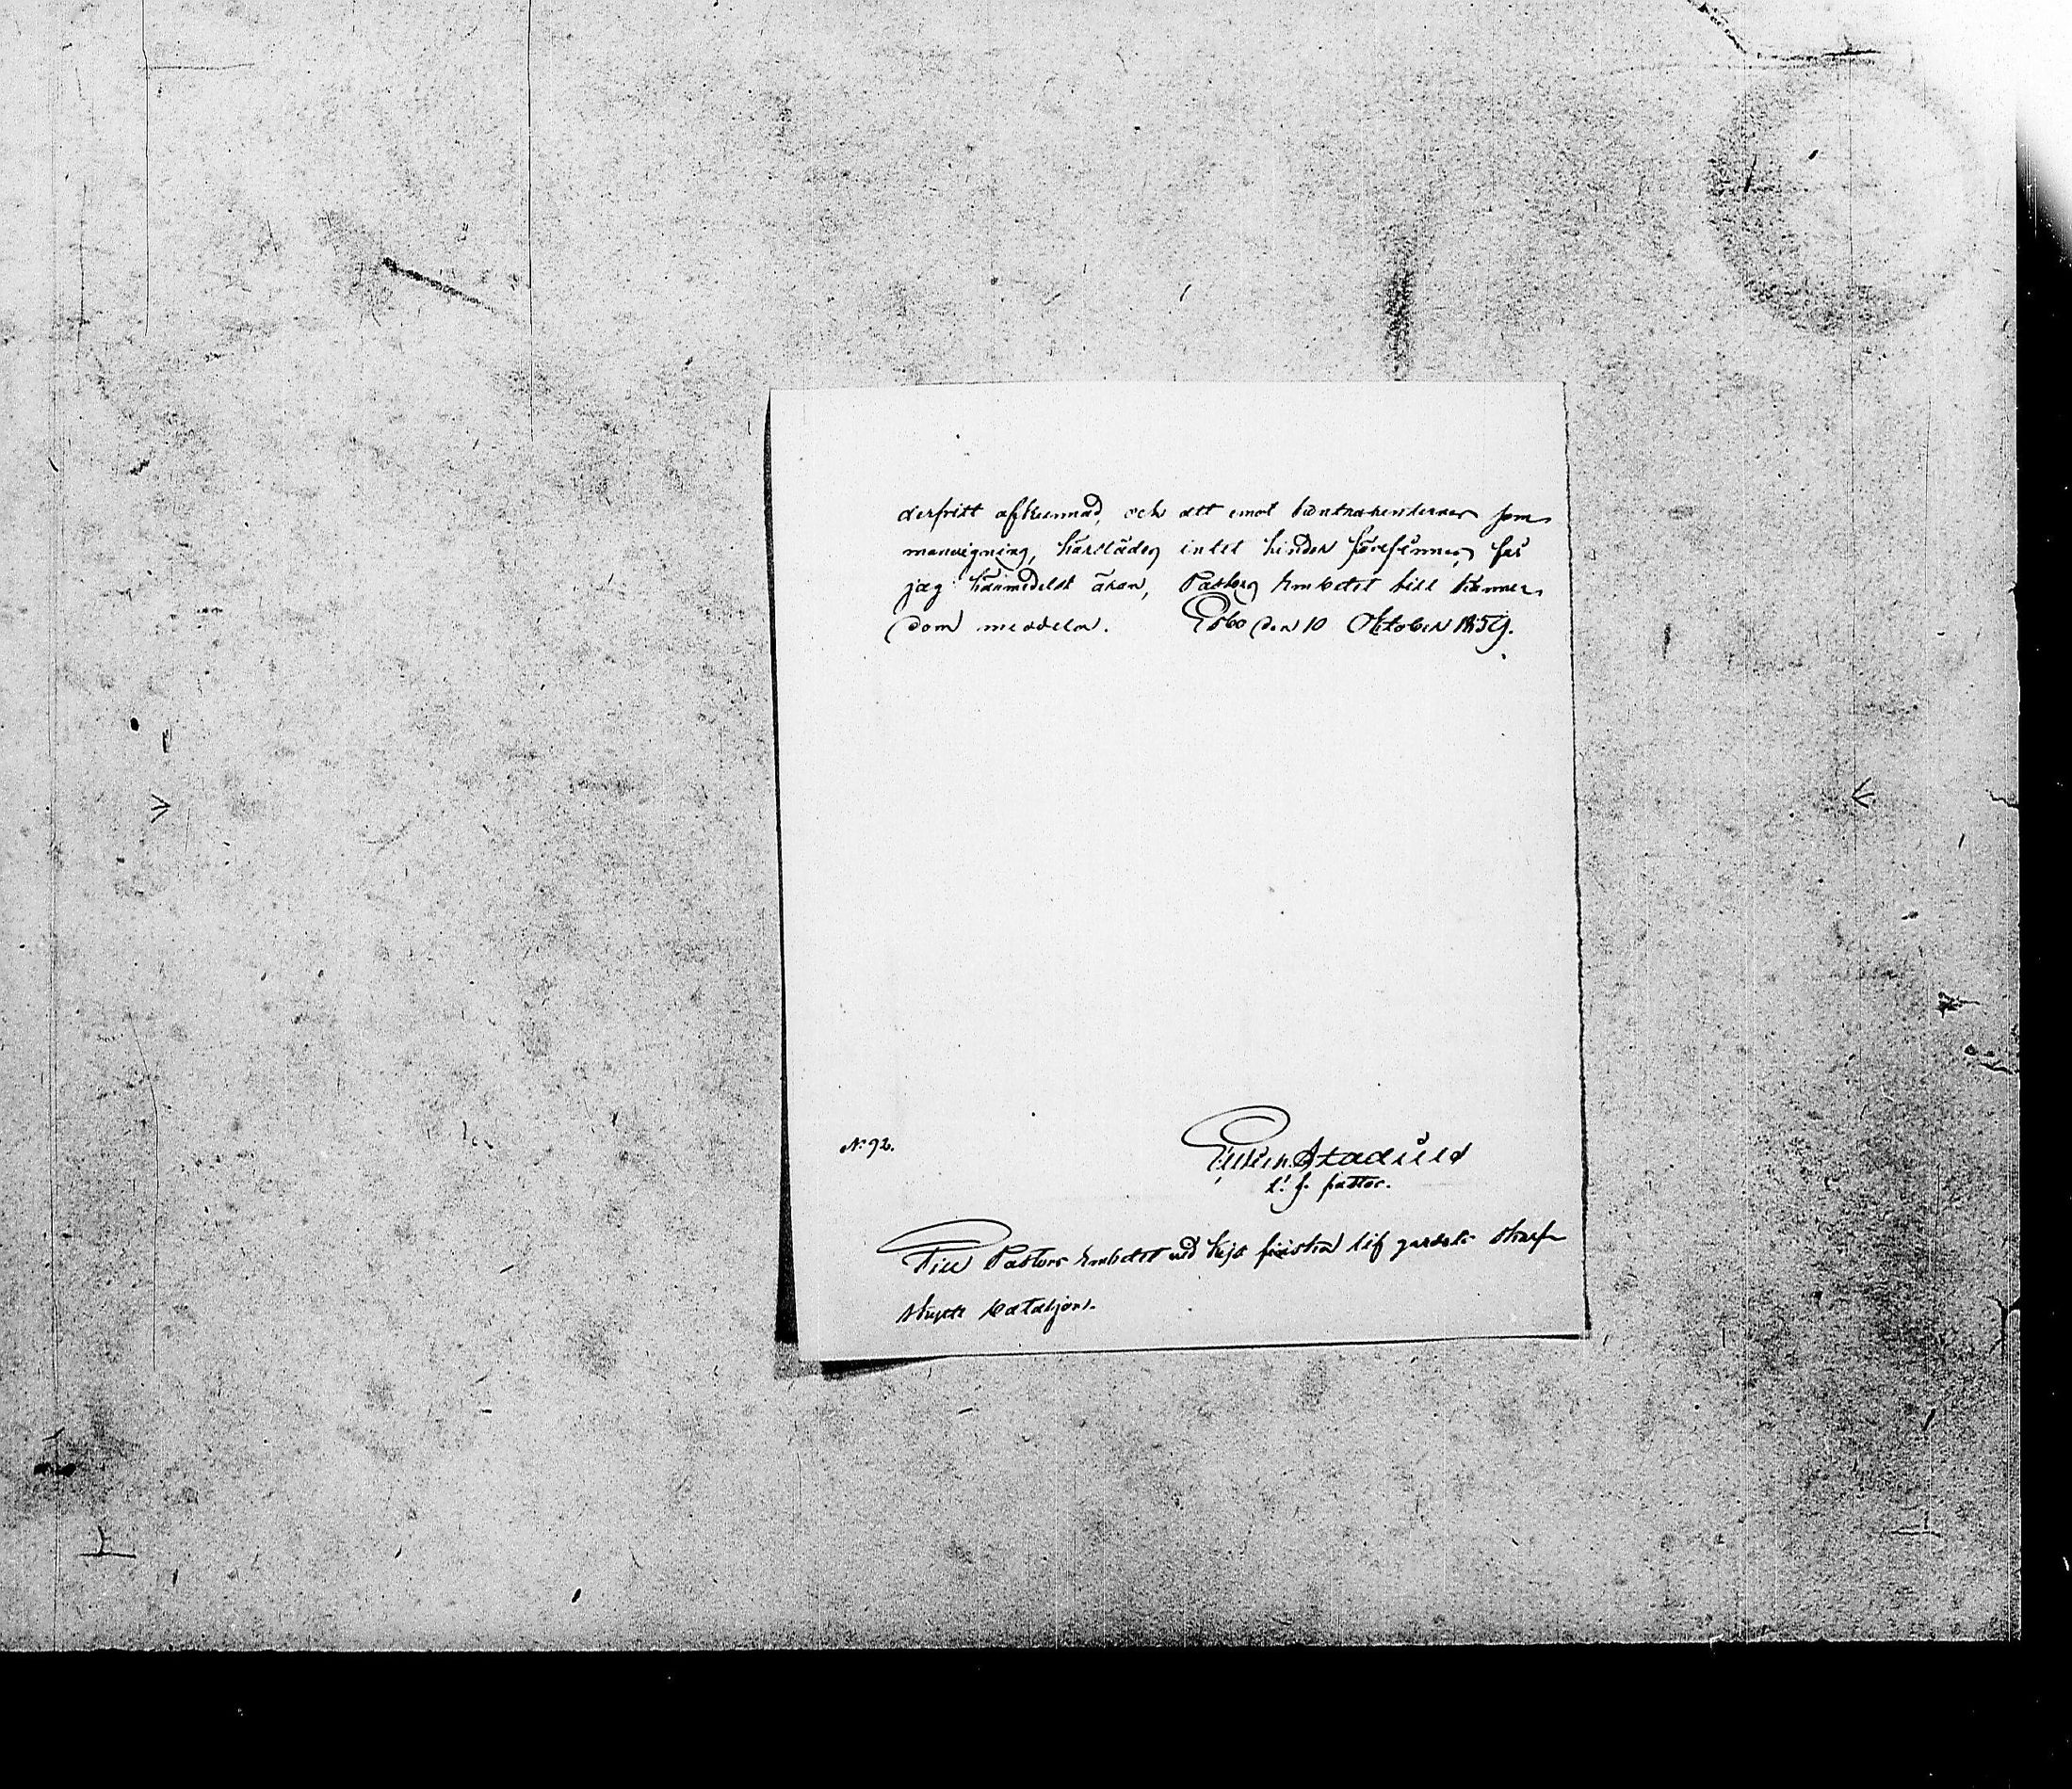 derfritt afkunnad, och att emot kontrahenternes sam
manvigning, härstädes intet hinder förefinnes, får
jag härmedelst äran, Pastors Embetet till känne
dom meddela. Esbo den 10 Oktober 1859.
N:o 92.
Stadius
t. f. pastor.
Till Pastors Embetet vid Kejs finska lif gardets skarp
skytte bataljon.